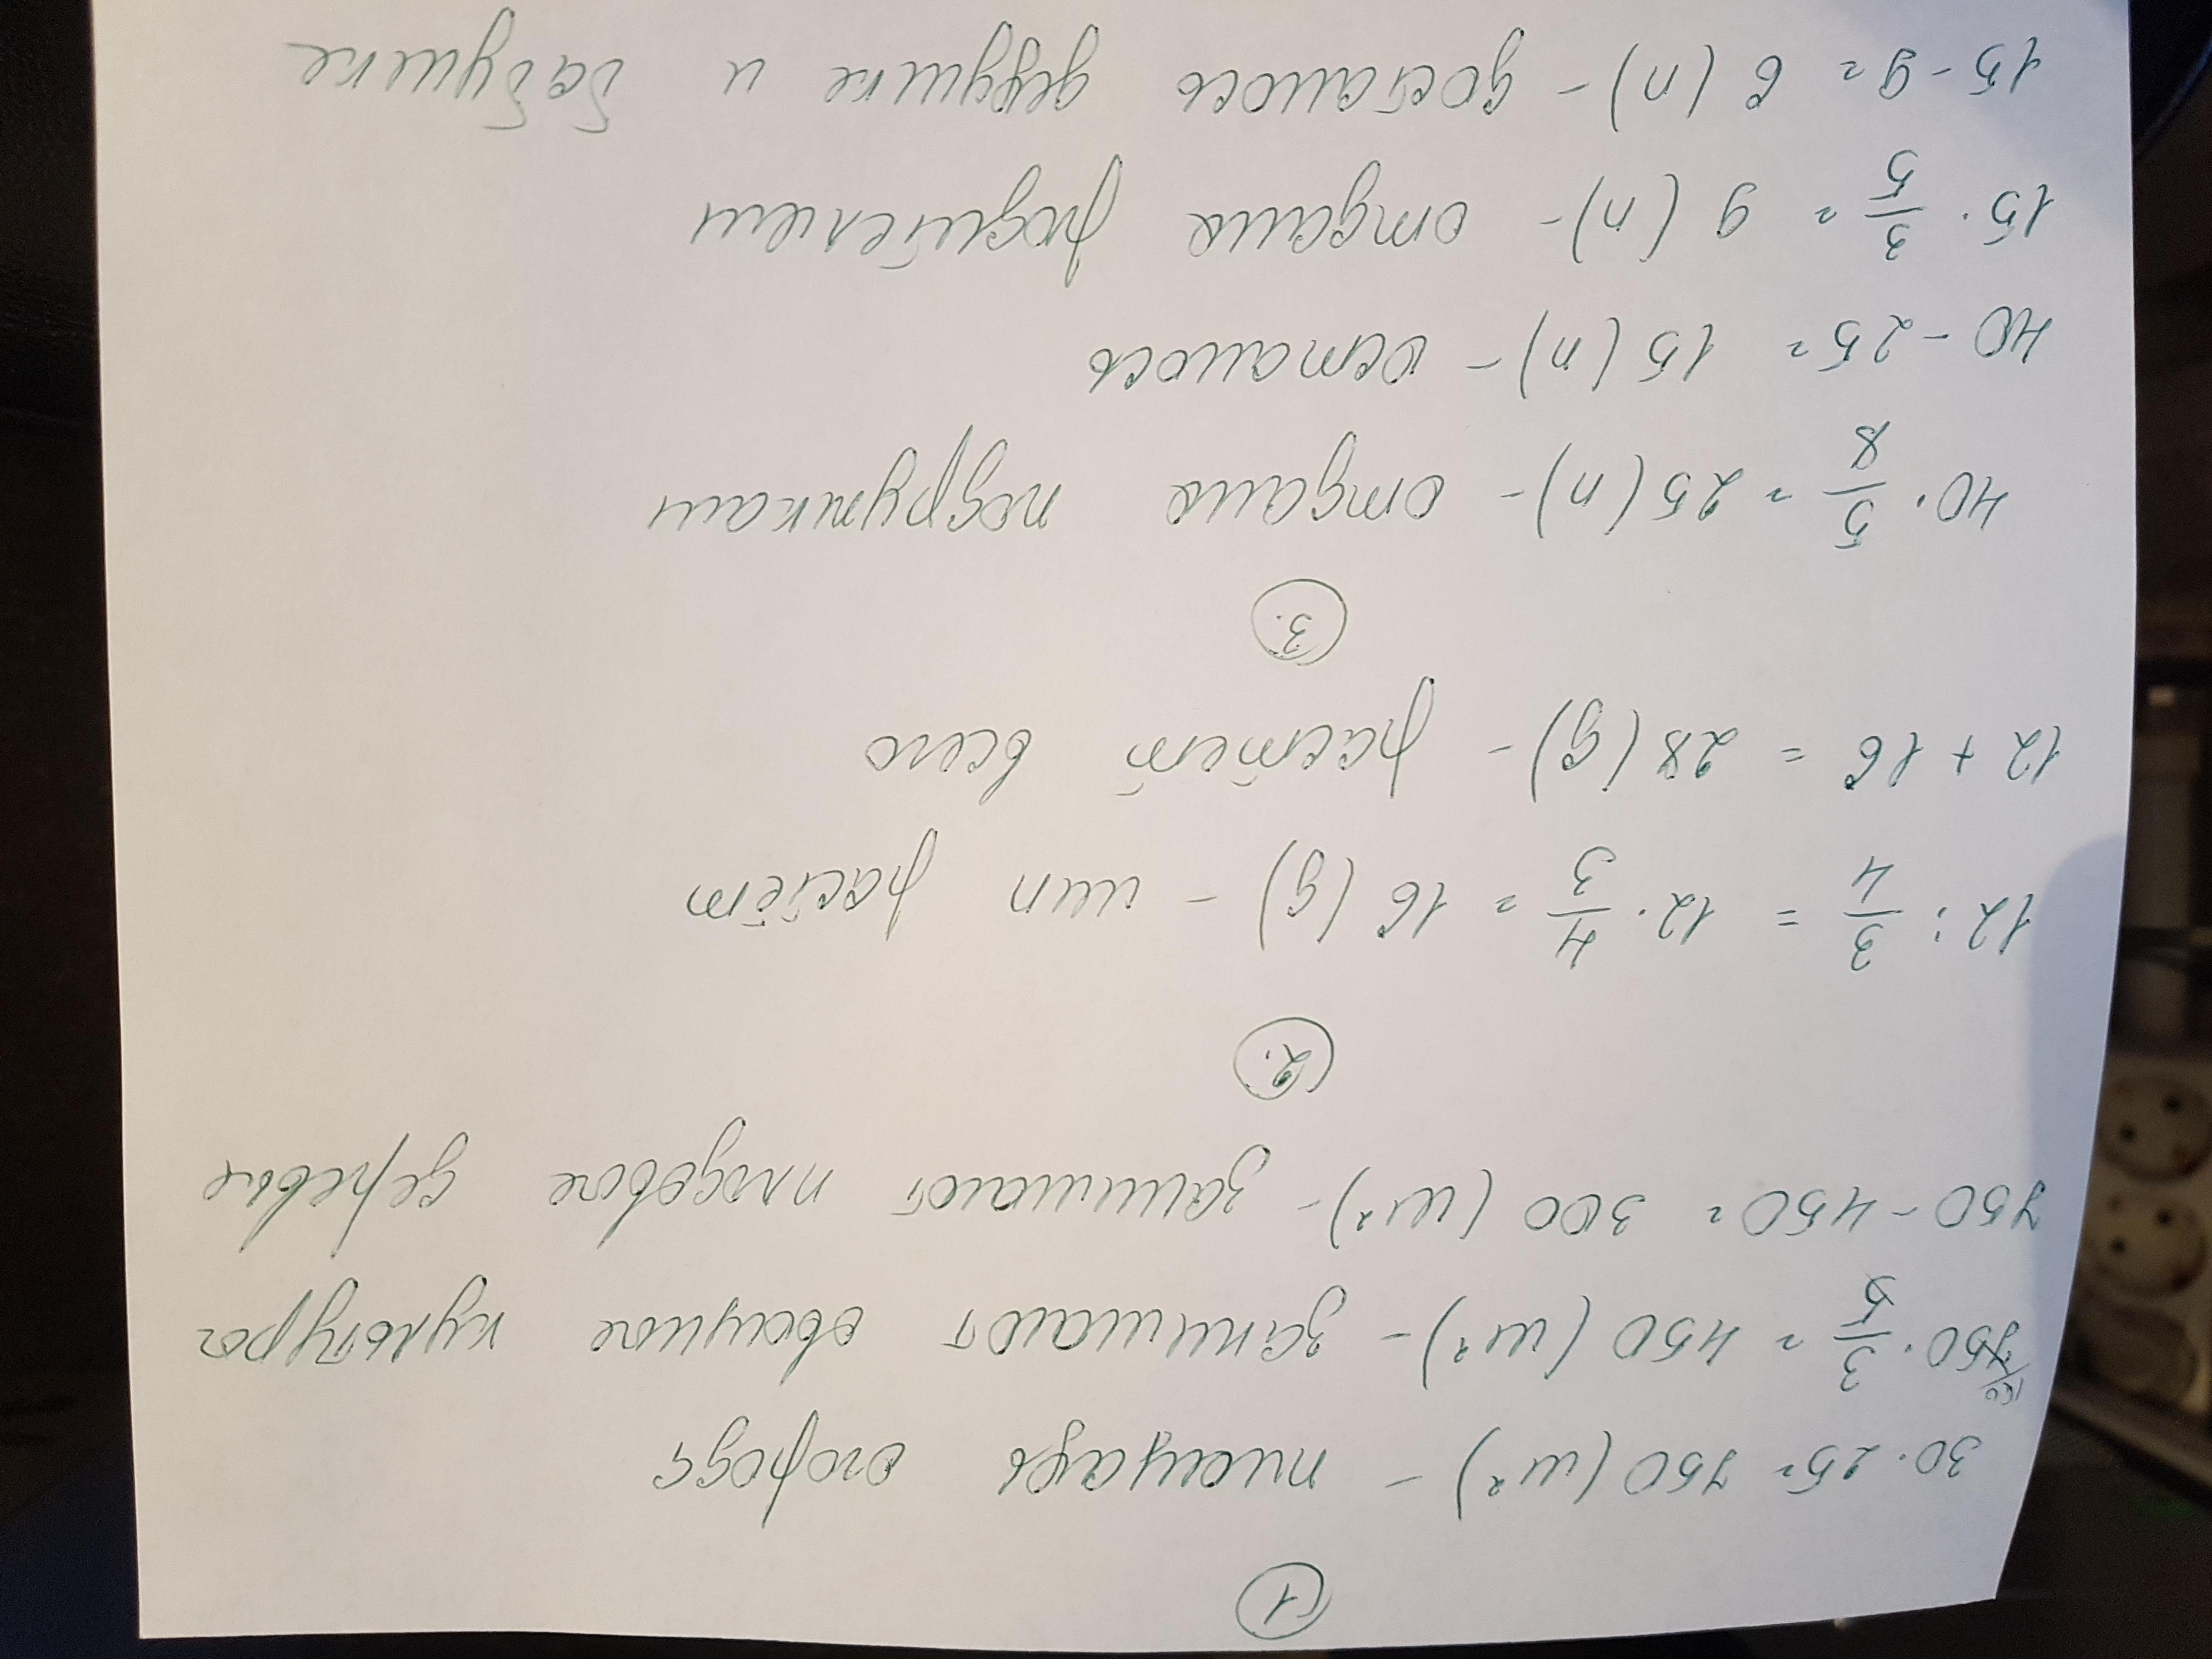 1
30·25=750(м²) – площадь огорода
150
750·3/5=450(м²) – занимают овощные культуры
750-450=300(м²) – занимают плодовые деревья
2.
12:3/4=12·4/3=16(д) – лип растёт
12+16=28(д) – растёт всего
3.
40·5/8=25(п) – отдала подружкам
40-25=15(п) – осталось
15·3/5=9(п) – отдала родителям
15-9=6(п) – досталось дедушке и бабушке